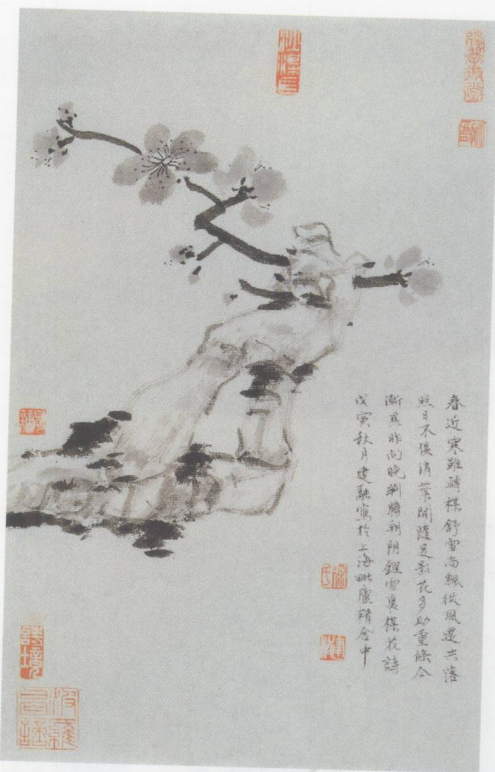 春近寒雖轉楳舒雪尚飄從風還共落
照日不俱消葉開隨足影花多助重條今
漸異昨向晚判勝朝陰鏗雪裏楳花詩
戊寅秋月建融寫於上海毗廬精舍中